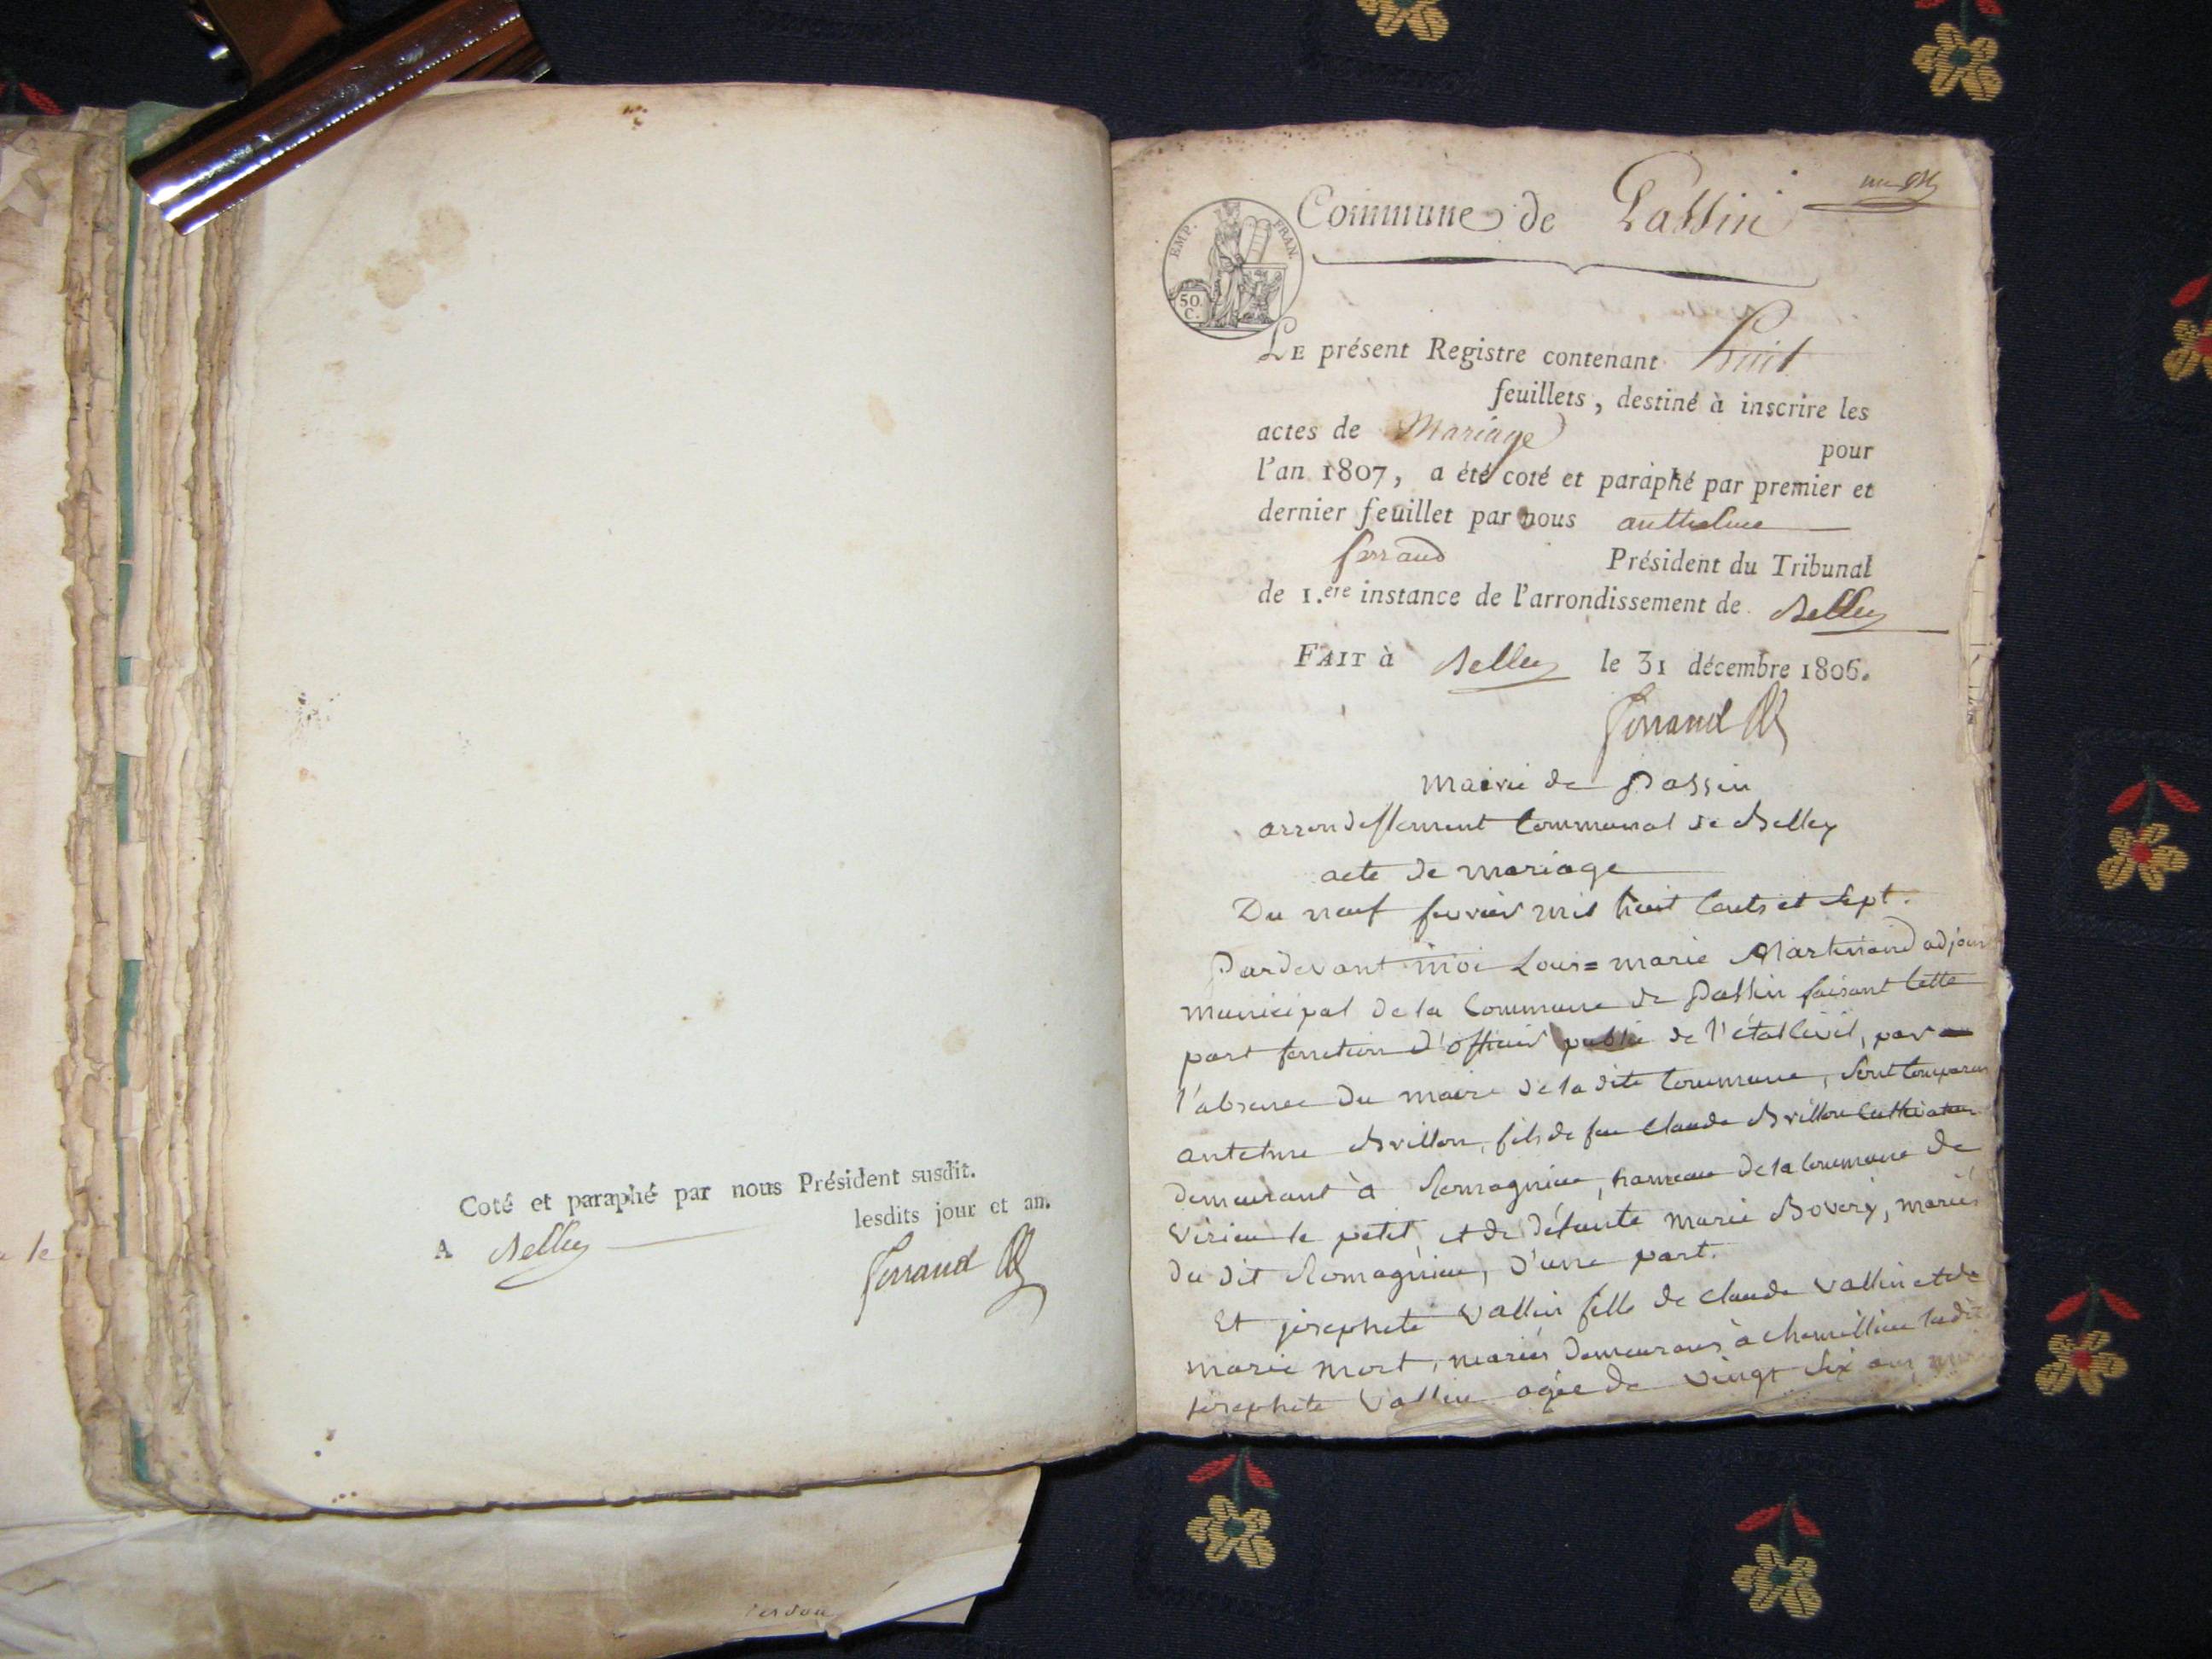 Coté et paraphé par nous Président susdit.
lesdits jour et an.
A Belley
Ferrand
Commune de Passin
EMP. FRAN.
50. C.
LE présent Registre contenant huit
feuillets, destiné à inscrire les
actes de Mariage pour
l'an 1807, a été coté et paraphé par premier et
dernier feuillet par nous anthelme
ferrand Président du Tribunal
de 1.ere instance de l'arrondissement de Belley
FAIT à Belley le 31 décembre 1806.
Ferrand
Mairie de Passin
arrondissement Communal de Belley
acte de mariage
Du neuf fevrier mil huit Cents et Sept.
Pardevant moi Louis=marie Martinand adjoint
municipal de la Commune de Passin faisant Cette
part fonction d'officier public de l'état Civil, par
l'absence Du maire de la dite Commune, Sont Comparus
antelme Brillon, fils de feu Claude Brillon Cultivateur
demeurant à Romagnieu, hameau de la Commune de
Virieu le petit, et de défunte marie Bovery, mariés
du dit Romagnieu, D'une part.
Et josephete Vallin fille de Claude Vallin et de
marie mort, mariés demeurans à Chemillieu ladite
josephete Vallin agée de vingt Six ans